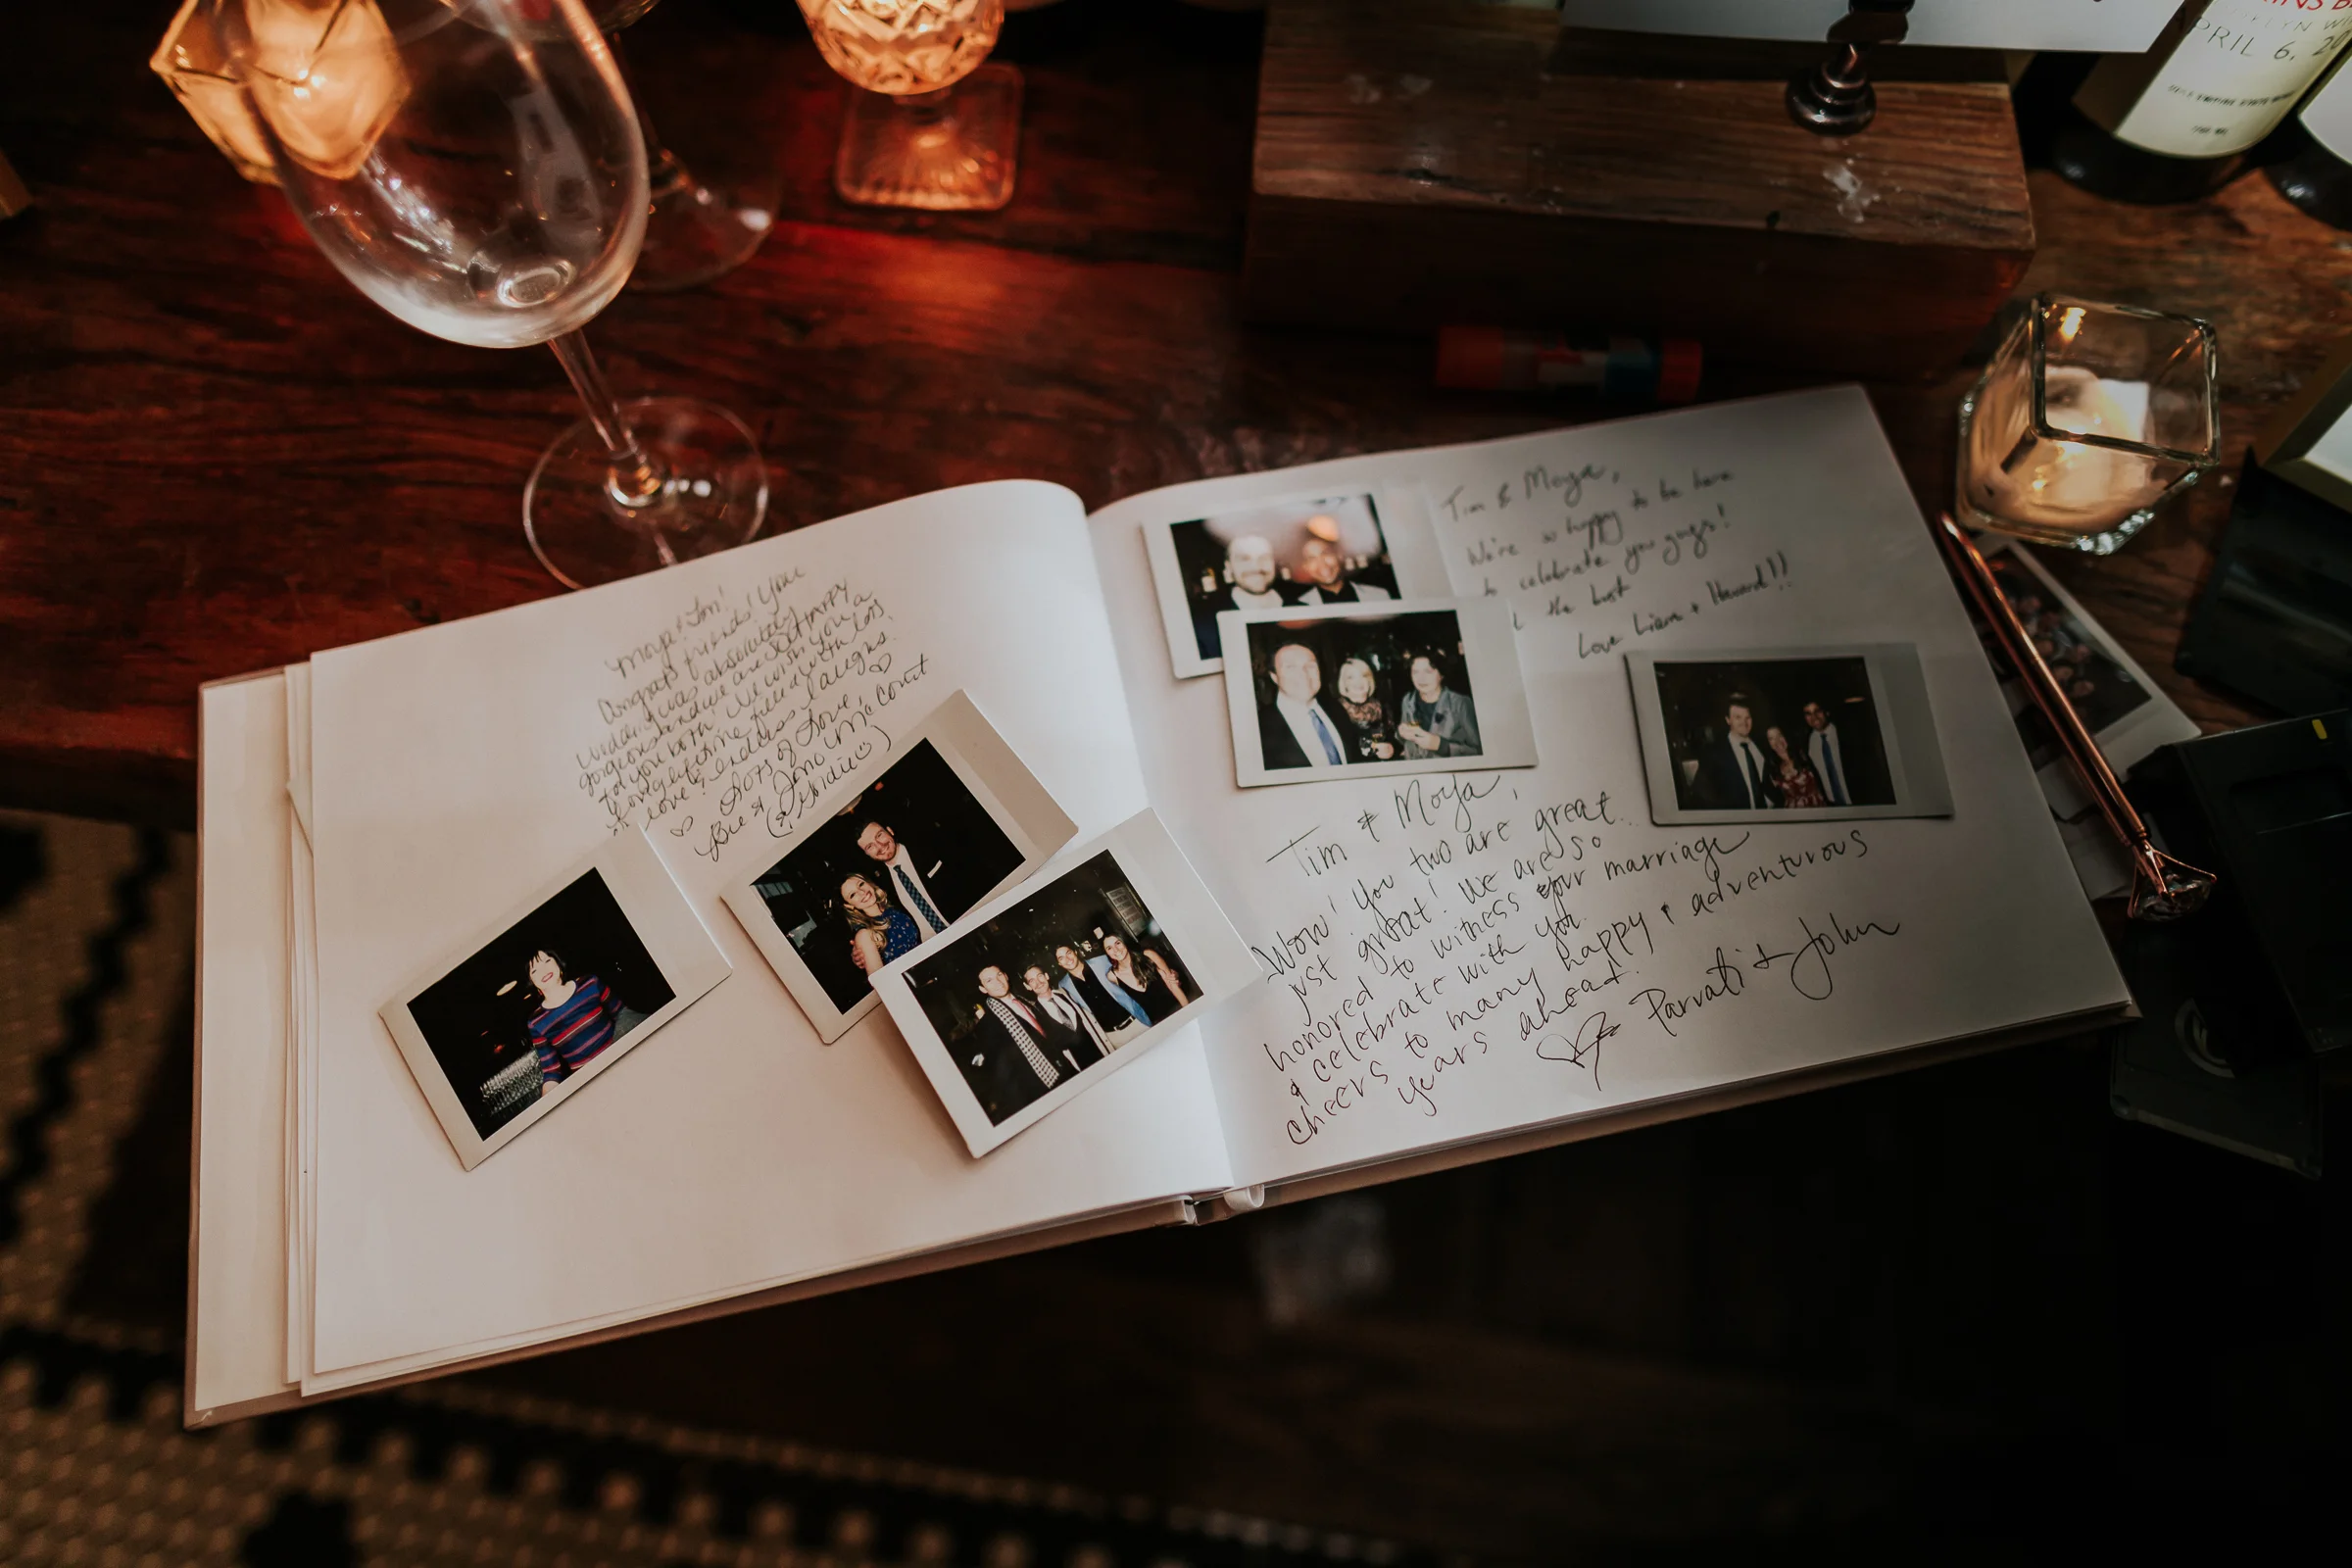 Moya & Tim!
Congrats friends! You
wedding was absolutely
gorgeous and we are so happy
for you both. We wish you a
long lifetime filled with lots
love & endless laughs.
♡ Lots of Love, ♡
Bre & Jono McCourt
(& Birdie ☺)
Tim & Moya,
We're so happy to be here
to celebrate you guys!
the best
Love Liam + Howard!!
Tim & Moya,
Wow! You two are great
just great! We are so
honored to witness your marriage
& celebrate with you.
cheers to many happy & adventurous
years ahead.
♡ Parvati + John
PRIL 6, 20